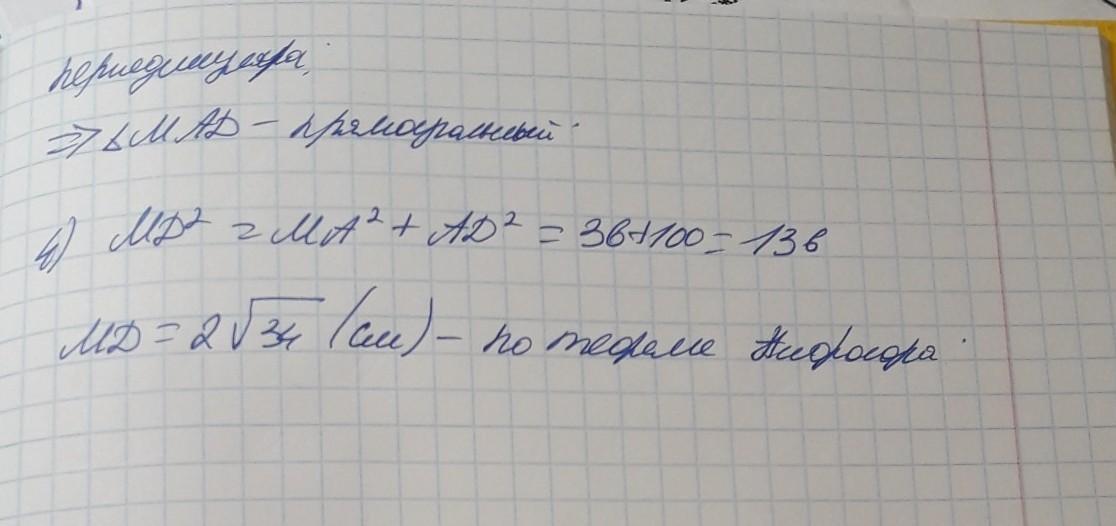 перпендикулярах,
⇒ △MAD – прямоугольный
4) MD² = MA² + AD² = 36+100 = 136
MD = 2√34 (см) – по теореме Пифагора